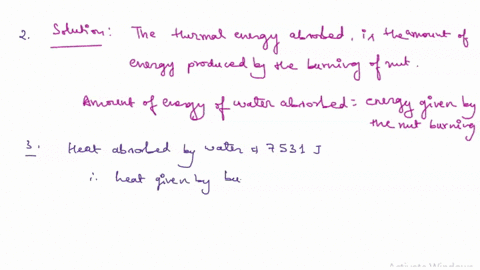 2. Solution: The thermal energy absorbed, is the amount of
energy produced by the burning of nut.
Amount of energy of water absorbed = energy given by
the nut burning
3. Heat absorbed by water is 7531 J
∴ heat given by bu
Activate Windows